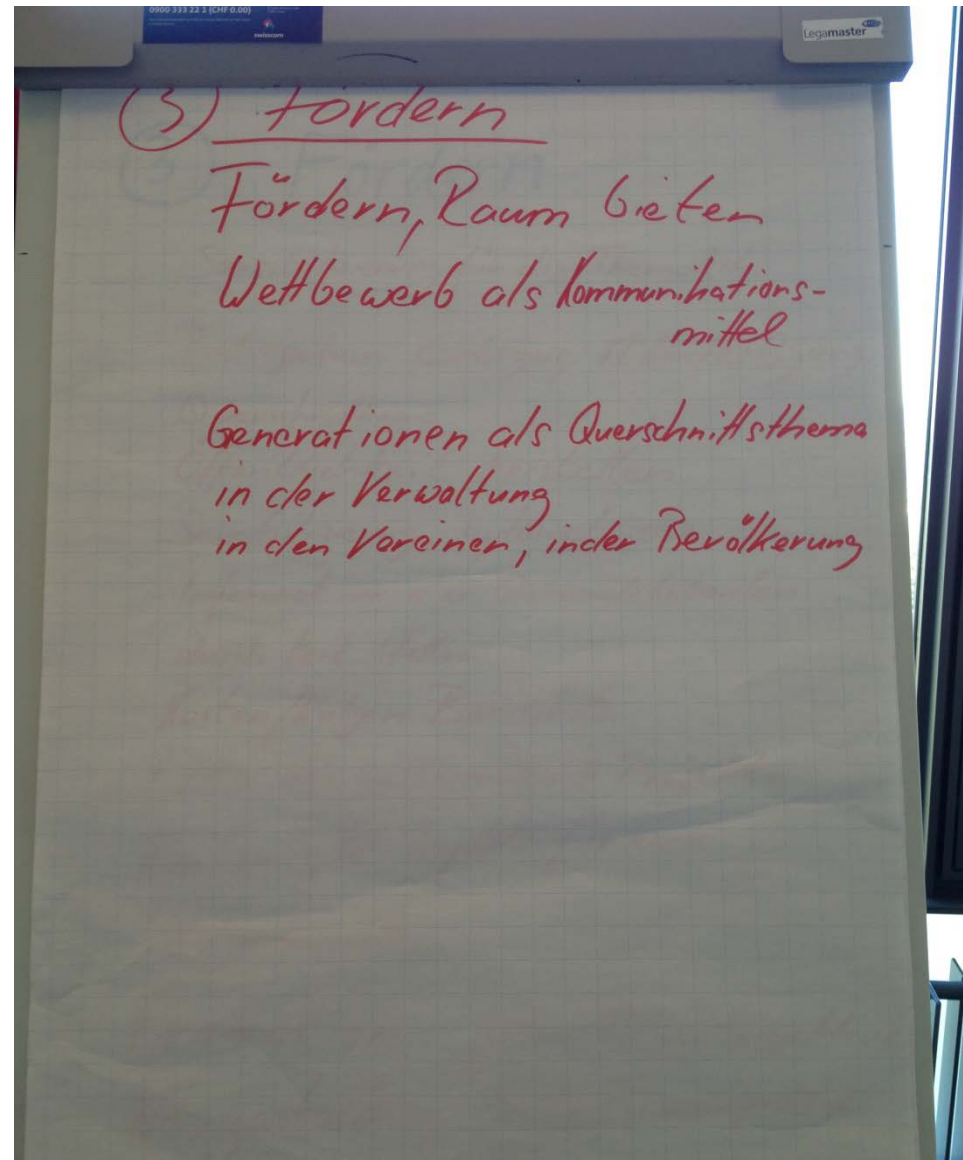 0900 333 22 1 (CHF 0.00)
swisscom
Legamaster
③ Fordern
Fördern, Raum bieten
Wettbewerb als Kommunikations-
mittel
Generationen als Querschnittsthema
in der Verwaltung
in den Vereinen, in der Bevölkerung